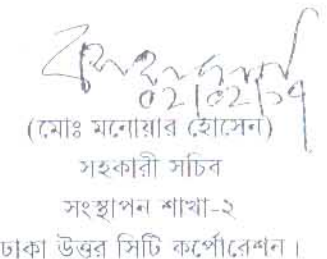 ০২|০২|১৭
(মোঃ মনোয়ার হোসেন)
সহকারী সচিব
সংস্থাপন শাখা-২
ঢাকা উত্তর সিটি কর্পোরেশন।